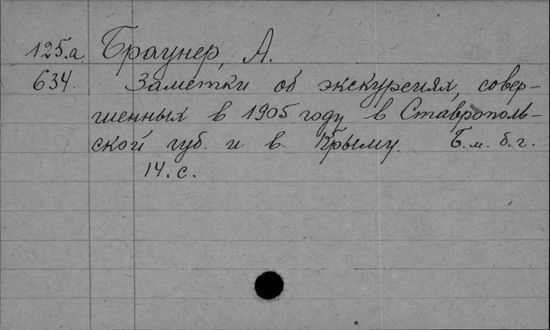 125.а Браунер, А.
634. Заметки об экскурсиях, совер-
шенных в 1905 году в Ставрополь-
ской губ. и в Крыму. Б.м. б.г.
14.с.